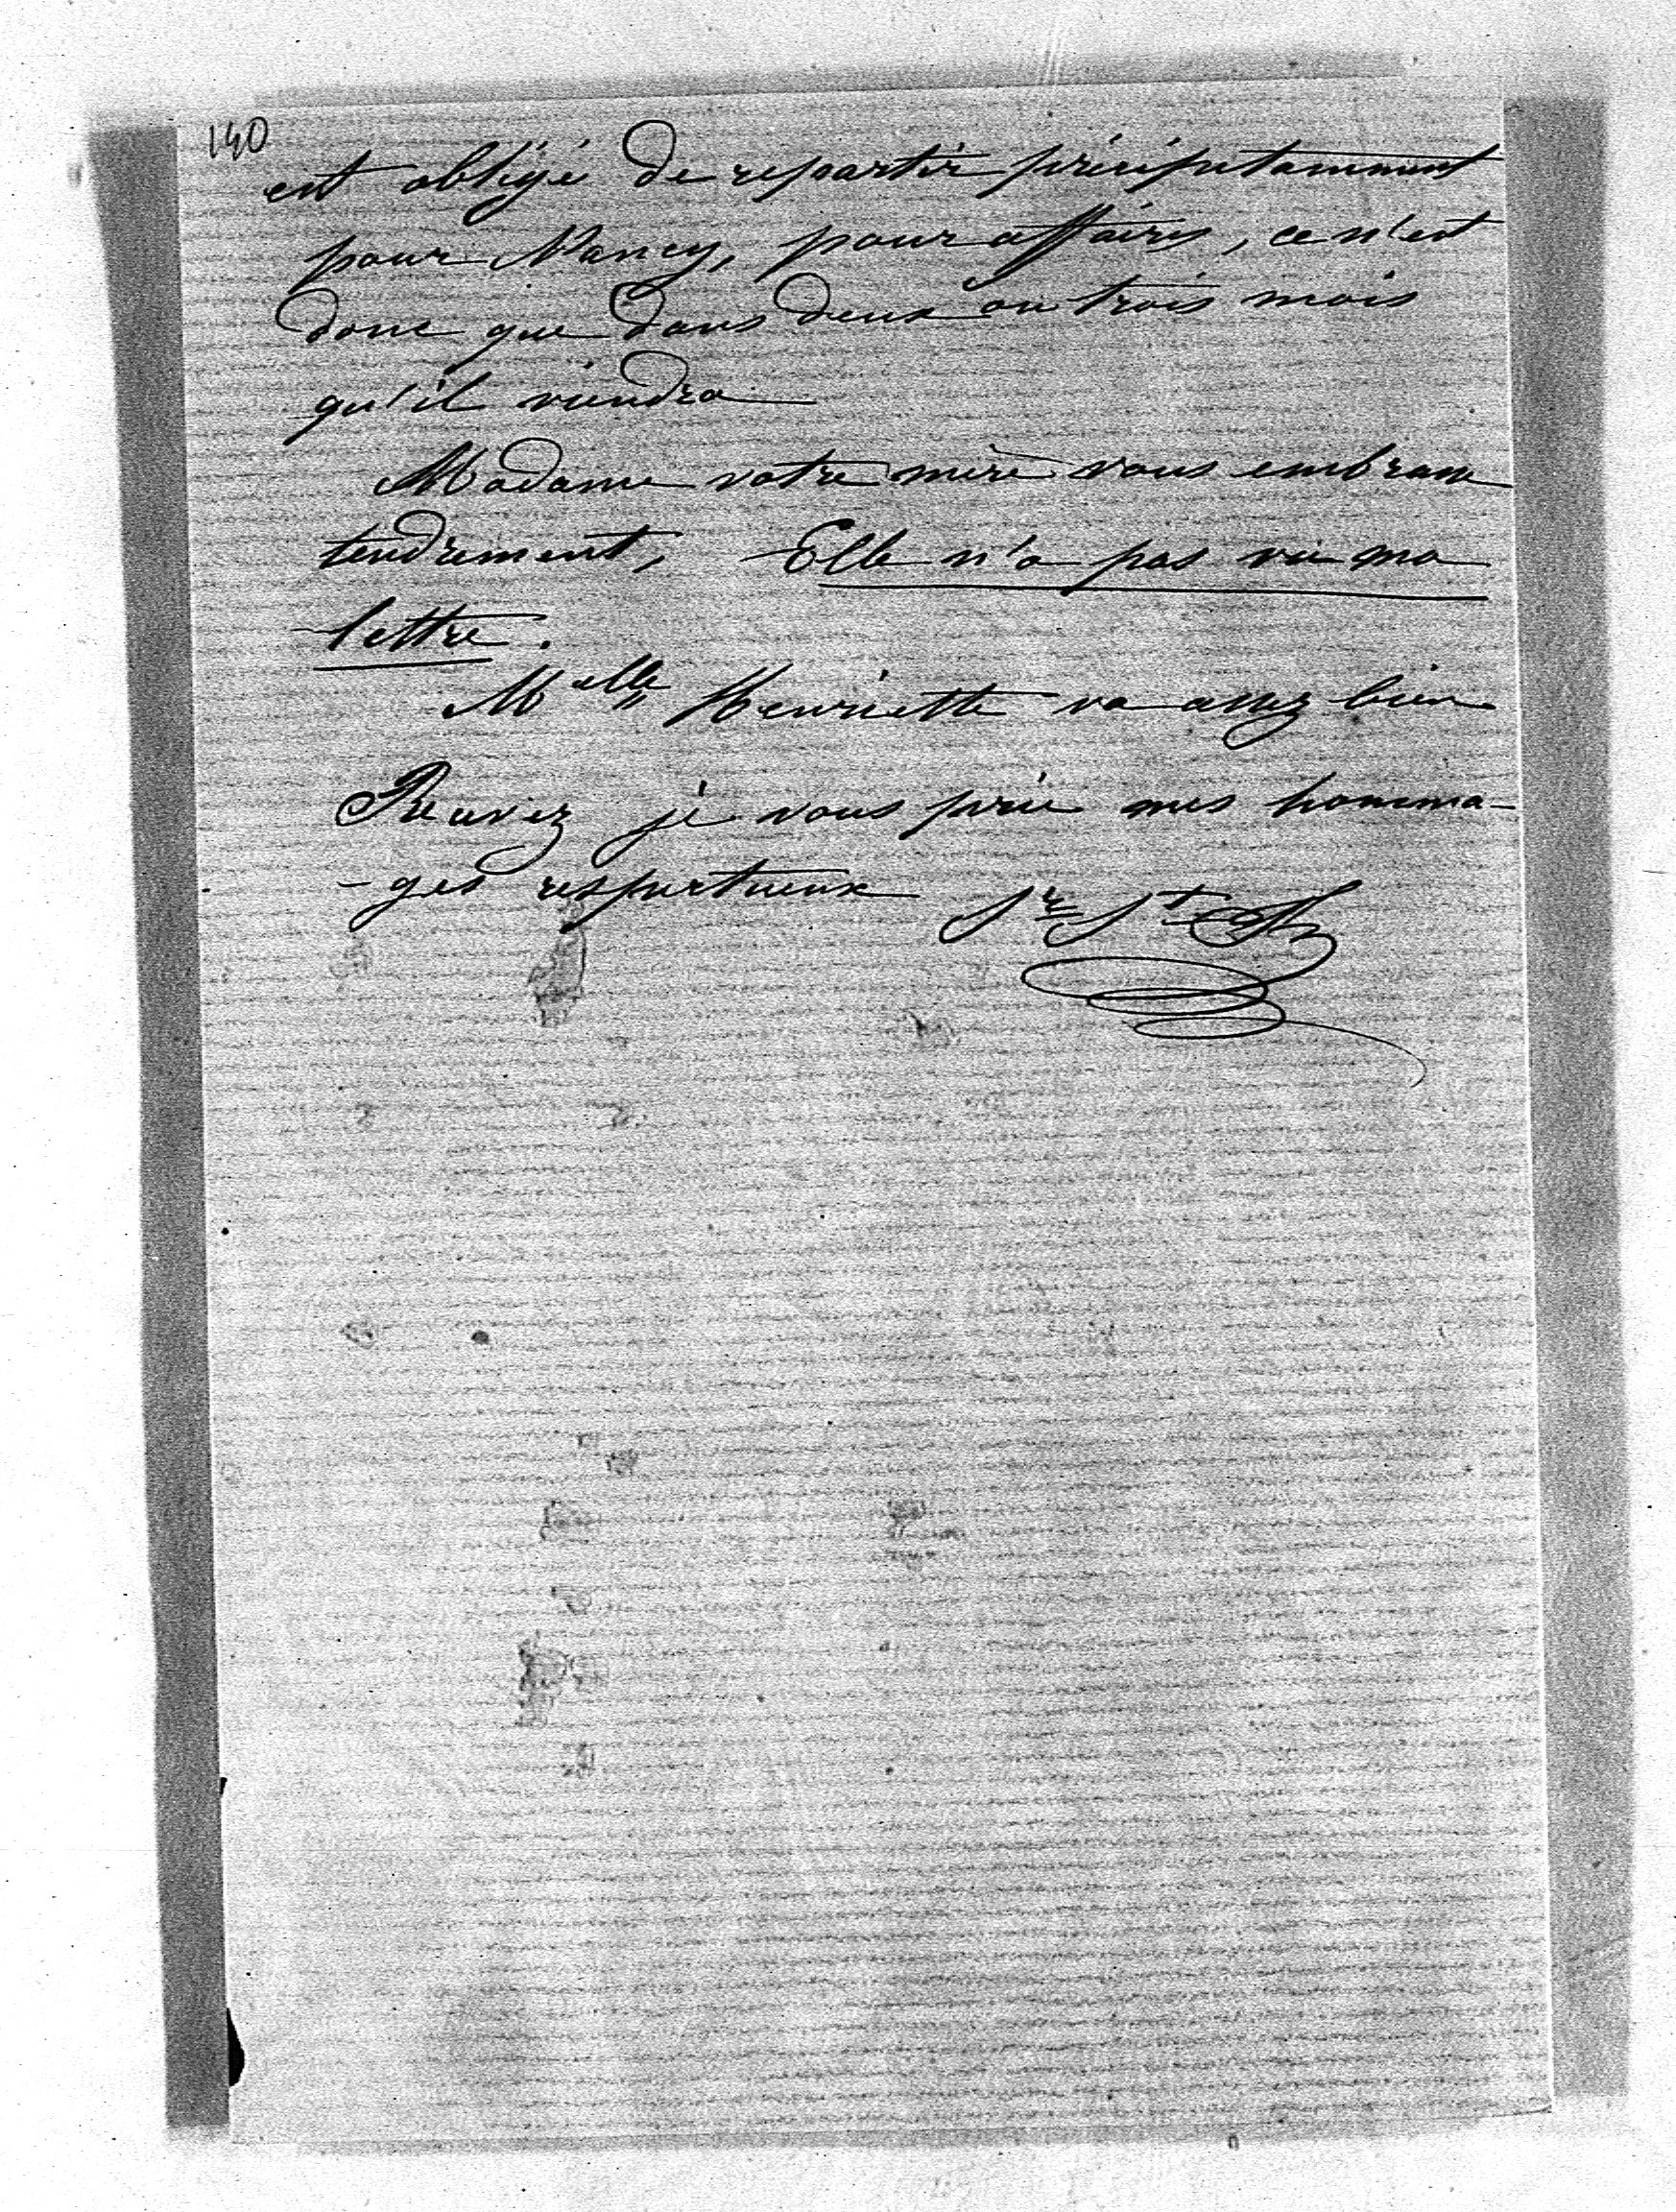 140
est obligé de repartir précipitamment
pour Nancy, pour affaires, ce n'est
donc que dans deux ou trois mois
qu'il viendra
Madame votre mère vous embrasse
tendrement, Elle n'a pas vu ma
lettre.
Melle Henriette va assez bien
Recevez je vous prie mes homma-
-ges respectueux Sr St